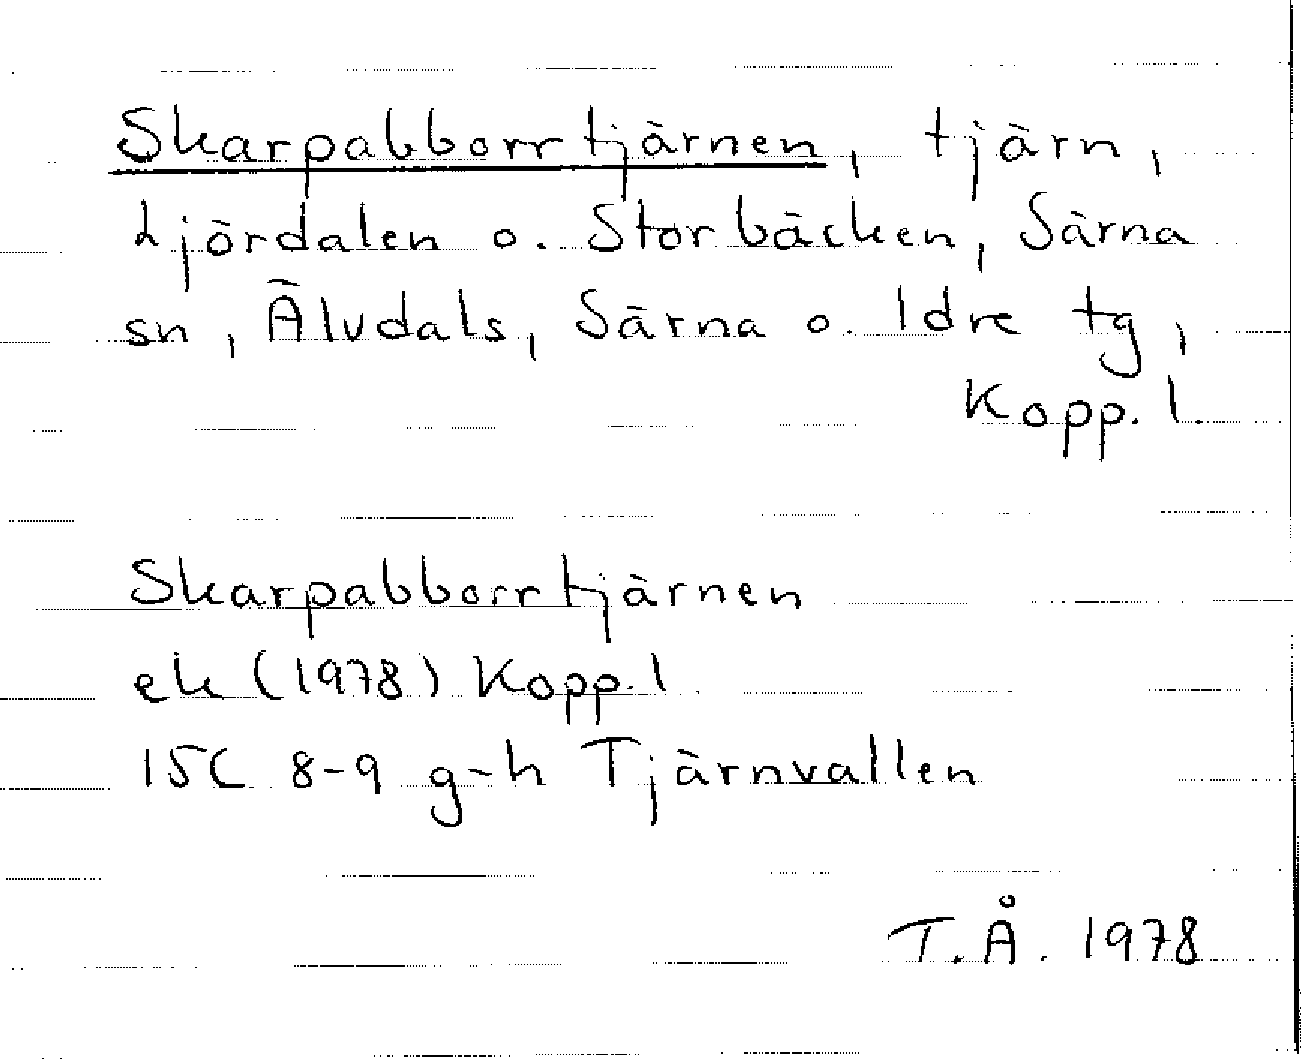 Skarpabborrtjärnen, tjärn,
Ljördalen o. Storbäcken, Särna
sn, Älvdals, Särna o. Idre tg,
Kopp. l.
Skarpabborrtjärnen
ek (1978) Kopp. l
15C 8-9 g-h Tjärnvallen
T.Å. 1978